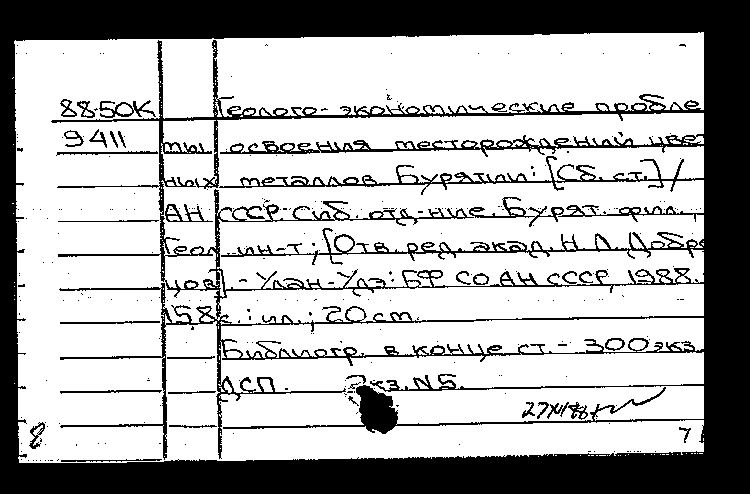 88-50К Геолого-экономические пробле
9411 мы освоения месторождений цвет
ных металлов Бурятии: [Сб. ст.] /
АН СССР. Сиб. отд-ние. Бурят. фил.,
Геол. ин-т; [Отв. ред. акад. Н.Л. Добре
цов]. - Улан-Удэ: БФ СО АН СССР, 1988.
158 с.: ил.; 20 см.
Библиогр. в конце ст. - 300 экз.
ДСП. Экз. N5.
8 7